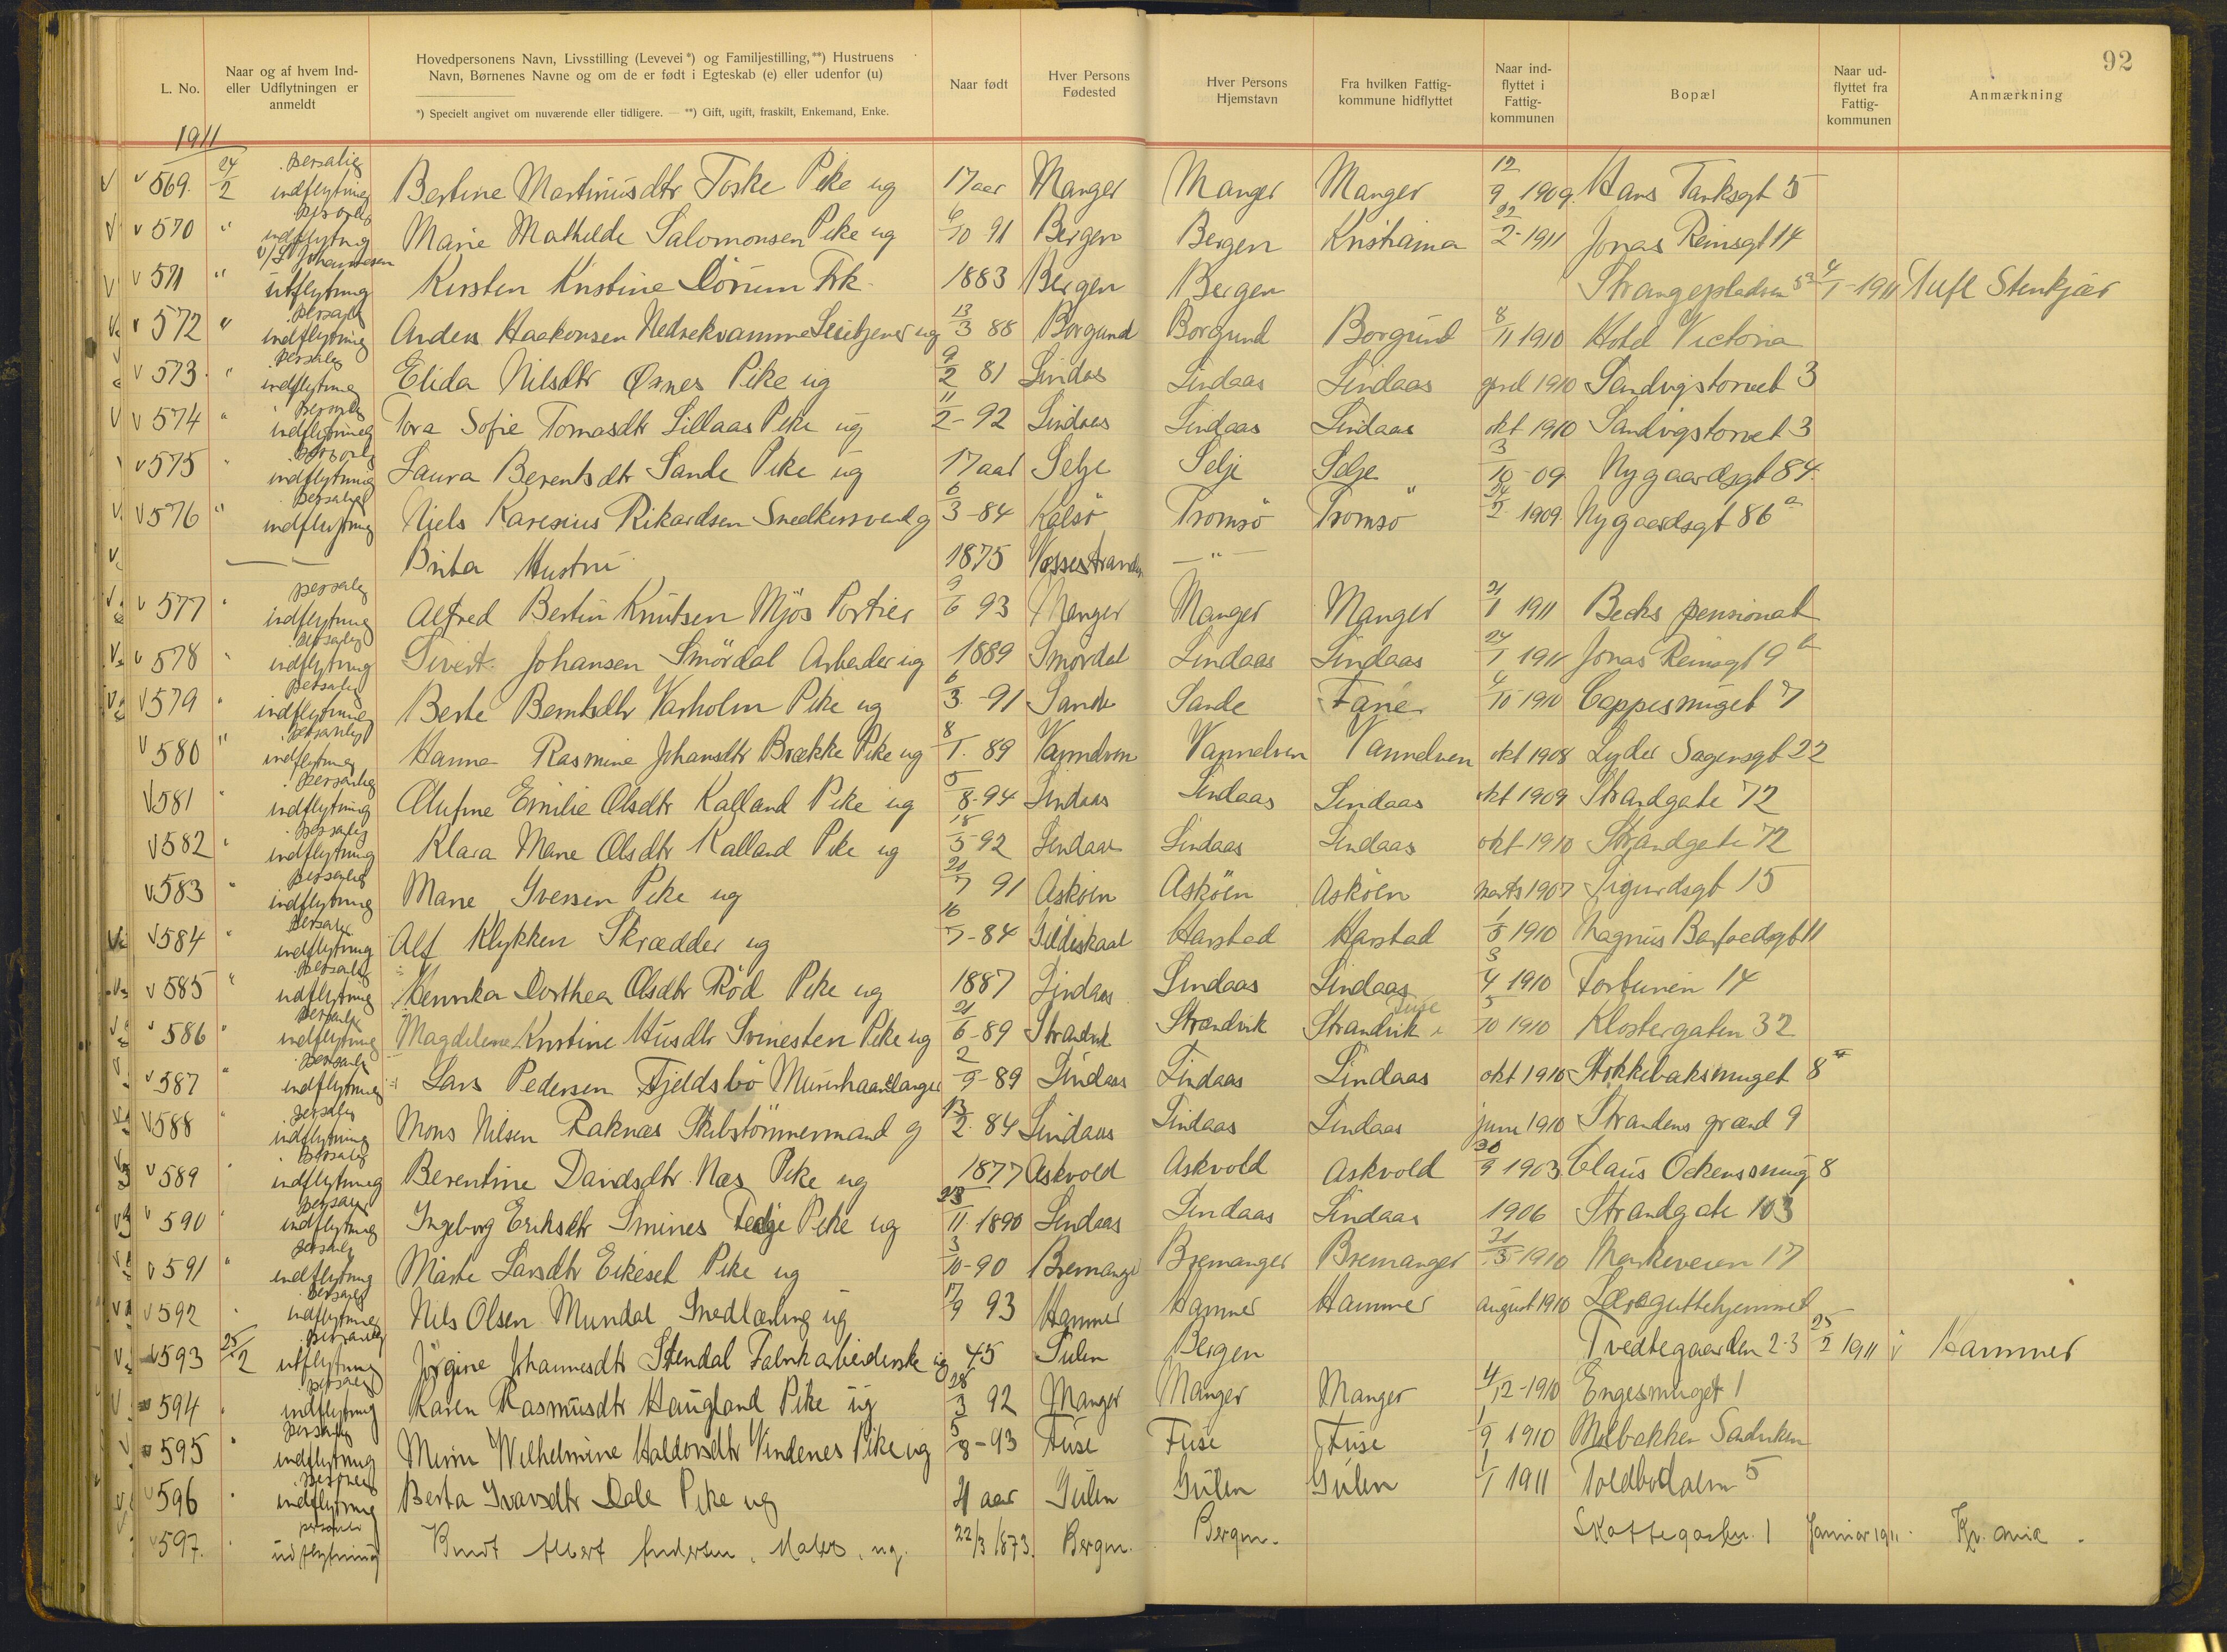 92
L. No.
Naar og af hvem Ind- eller Udflytningen er anmeldt
Hovedpersonens Navn, Livsstilling (Levevei*) og Familjestilling,**) Hustruens Navn, Børnenes Navne og om de er født i Egteskab (e) eller udenfor (u)
*) Specielt angivet om nuværende eller tidligere. — **) Gift, ugift, fraskilt, Enkemand, Enke.
Naar født
Hver Persons Fødested
Hver Persons Hjemstavn
Fra hvilken Fattig-kommune hidflyttet
Naar ind-flyttet i Fattig-kommunen
Bopæl
Naar ud-flyttet fra Fattig-kommunen
Anmærkning
1911
v v 569. 24/2 personlig indflytning Bertine Martinusdtr Toske Pike ug 17 aar Manger Manger Manger 12/9 1909. Hans Tanksgt 5
v v 570 " personlig indflytning Marie Mathilde Salomonsen Pike ug 6/10 91 Bergen Bergen Kristiania 22/2-1911 Jonas Reinsgt 14
v v 571 " v/ Johannesen utflytning Kirsten Kristine Dörum Frk. 1883 Bergen Bergen Strangepladsen 5 4/1-1911 Stenkjær
v v 572 " personlig indflytning Anders Haakonsen Nedrekvamme ug 13/3 88 Borgund Borgund Borgund 8/11 1910 Hotel Victoria
v v 573. " personlig indflytning Elida Nilsdtr Pike ug 9/2 81 Lindaas Lindaas Lindaas april 1910 Sandvigstorvet 3
v v 574 " personlig indflytning Tora Sofie Tomasdtr Lillaas Pike ug 11/2-92 Lindaas Lindaas Lindaas okt 1910 Sandvigstorvet 3
v 575 " personlig indflytning Laura Berentsdtr Sande Pike ug 17 aar Selje Selje Selje 3/10-09 Nygaardsgt 84.
v v 576 " personlig indflytning Niels Karesius Rikardsen Snedkersvend g 6/3-84 Kalsö Tromsö Tromsö 24/2 1909 Nygaardsgt 86 a
v — — Brita Hustru 1875 Vossestranden — " —
v v 577 " personlig indflytning Alfred Bertin Knutsen Mjös Portier 9/6 93 Manger Manger Manger 21/1 1911 Becks pensionat
v v 578 " personlig indflytning Sivert Johansen Smördal Arbeider ug 1889 Smördal Lindaas Lindaas 24/1 1911 Jonas Reinsgt 9 b
v v 579 " personlig indflytning Berte Berntsdtr Varholm Pike ug 6/3-91 Sande Sande Fane 4/10 1910 Coppesmuget 7
v 580 " personlig indflytning Hanna Rasmine Johansdtr Brække Pike ug 8/1. 89 Vannelven Vannelven Vannelven okt 1908 Lyder Sagensgt 22
v 581 " personlig indflytning Olufine Emilie Olsdtr Kalland Pike ug 5/8-94 Lindaas Lindaas Lindaas okt 1909 Strandgate 72
v 582 " personlig indflytning Klara Marie Olsdtr Kalland Pike ug 18/5 92 Lindaas Lindaas Lindaas okt 1910 Strandgate 72
v 583 " personlig indflytning Marie Iversen Pike ug 21/7 91 Asköen Asköen Asköen marts 1907 Sigurdsgt 15
v v 584 " personlig indflytning Alf Klykken Skrædder ug 16/7-84 Gildeskaal Harstad Harstad 1/5 1910 Magnus Barfoedsgt 11
v v 585 " personlig indflytning Henrika Dorthea Olsdtr Röd Pike ug 1887 Lindaas Lindaas Lindaas 3/4 1910 Fortunen 14
v v 586 " personlig indflytning Magdelene Kristine Husdtr Svinesten Pike ug 21/6-89 Strandvik Strandvik Strandvik Fuse 5/10 1910 Klostergaten 32
v v 587 " personlig indflytning Lars Pedersen Fjeldsbö Murerhaandlanger 2/9-89 Lindaas Lindaas Lindaas okt 1910 Stokkebaksmuget 8
v v 588 " personlig indflytning Mons Nilsen Raknæs Skibstömmermand g 13/2. 84 Lindaas Lindaas Lindaas juni 1910 Strandens grænd 9
v v 589 " personlig indflytning Berentine Davidsdtr Næs Pike ug 1877 Askvold Askvold Askvold 30/9 1903 Claus Ockenssmug 8
v v 590 " personlig indflytning Ingeborg Eriksdtr Smines Fedje Pike ug 23/11. 1890 Lindaas Lindaas Lindaas 1906 Strandgate 103
v v 591 " personlig indflytning Marte Larsdtr Eikeset Pike ug 3/10-90 Bremanger Bremanger Bremanger 21/5 1910 Markeveien 17
v v 592 " personlig indflytning Nils Olsen Mundal Smedlærling ug 17/9 93 Hammer Hammer Hammer august 1910 Læreguttehjemmet
v v 593 25/2 personlig utflytning Jörgine Johannesdtr Stendal Fabrikarbeiderske ug 45 Gulen Bergen Tvedtegaarden 2-3 25/2 1911 Hammer
v 594 " personlig indflytning Karen Rasmusdtr Haugland Pike ug 28/3 92 Manger Manger Manger 4/12-1910 Engesmuget 1
v 595 " personlig indflytning Mimi Wilhelmine Haldorsdtr Vindenes Pike ug 5/8-93 Fuse Fuse Fuse 1/9 1910 Mølbakken Sandviken
v v 596 " personlig indflytning Berta Ivarsdtr Dale Pike ug 21 aar Gulen Gulen Gulen 1/1 1911 Toldbodalm 5
v 597. " personlig udflytning Albert Andersen, Maler, ug. 22/3 1873. Bergen. Bergen. Skottegaten 1 Januar 1911. Kr.ania.